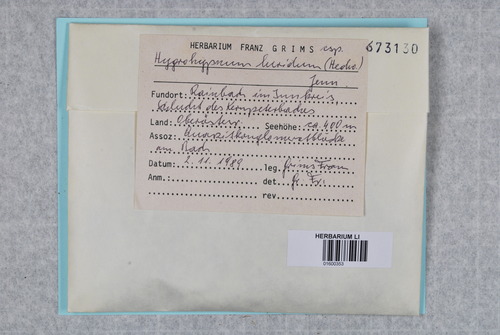 HERBARIUM FRANZ GRIMS csp. 673130
Hygrohypnum luridum (Hedw.)
Jenn.
Fundort: Rainbach im Innkreis,
des
Land: Oberösterr. Seehöhe: ca 400 m
Assoz:
am Bach
Datum: 2. 11. 1989 leg. Grims Franz
Anm.: det. Gr. Fr.
rev.
HERBARIUM LI
01600353